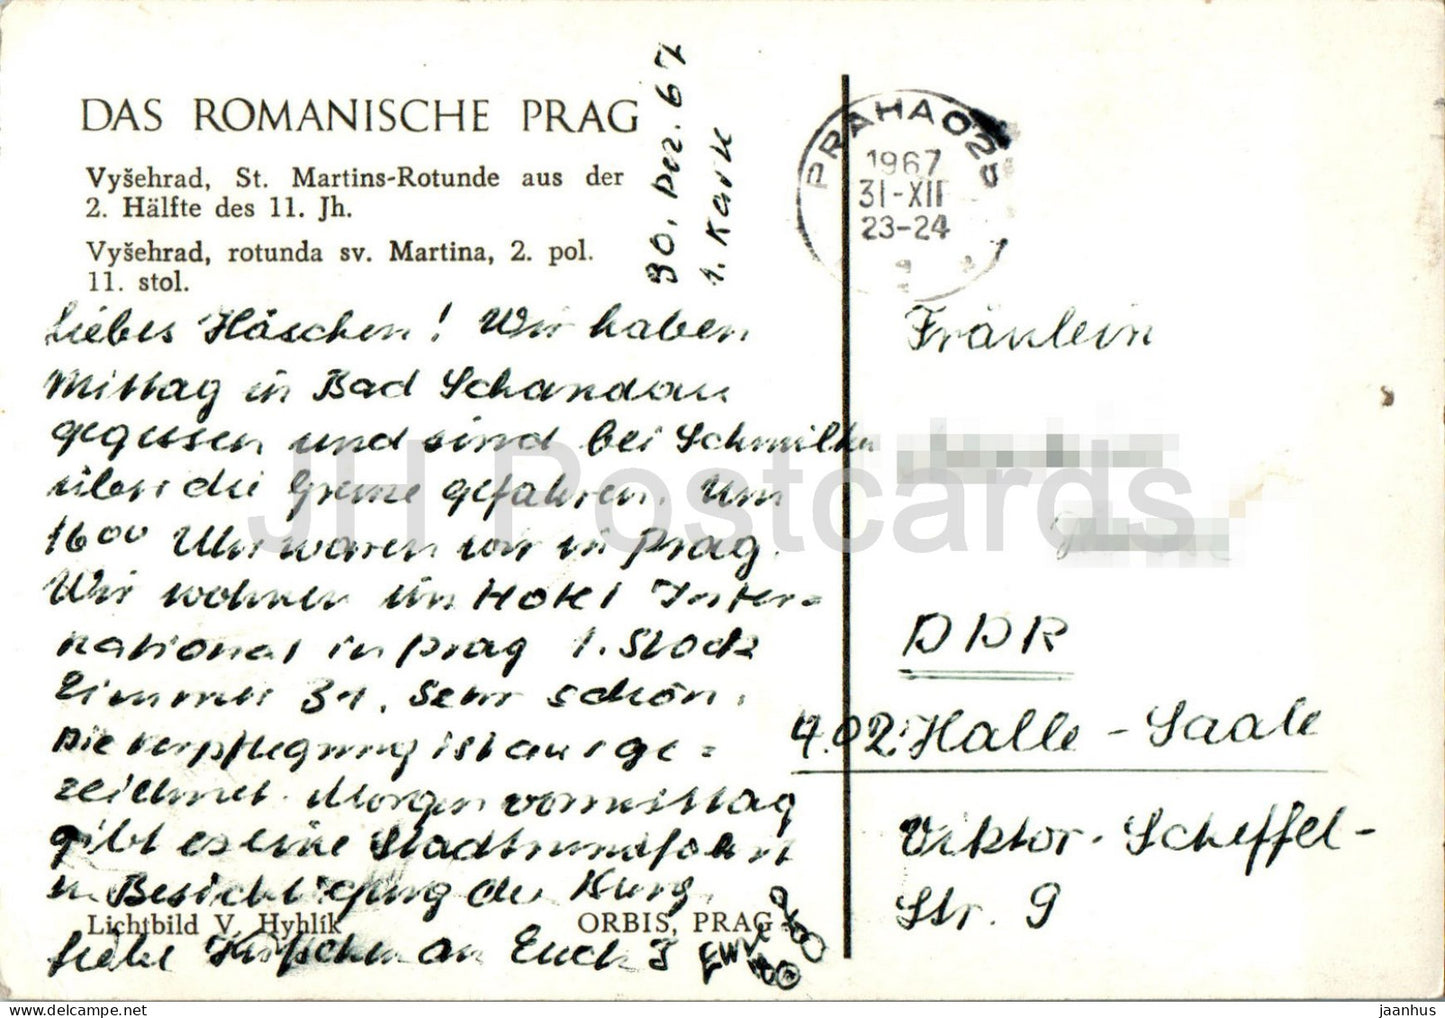 DAS ROMANISCHE PRAG
Vyšehrad, St. Martins-Rotunde aus der
2. Hälfte des 11. Jh.
Vyšehrad, rotunda sv. Martina, 2. pol.
11. stol.
30. Dez. 67
1. Karte
Liebes Häschen! Wir haben
Mittag in Bad Schandau
gegessen und sind bei Schmilka
über die Grenze gefahren. Um
16⁰⁰ Uhr waren wir in Prag.
Wir wohnen im Hotel Inter=
national in Prag 1. Stock
Zimmer 31. Sehr schön.
Die Verpflegung ist ausge=
zeichnet. Morgen vormittag
gibt es eine Stadtrundfahrt
u. Besichtigung der Burg.
Lichtbild V. Hyhlík
ORBIS, PRAG
liebe Küßchen an Euch 3
PRAHA 025
1967
31-XII
23-24
Fräulein
DDR
402 Halle - Saale
Viktor-Scheffel-
Str. 9
JH Postcards
jaanhus